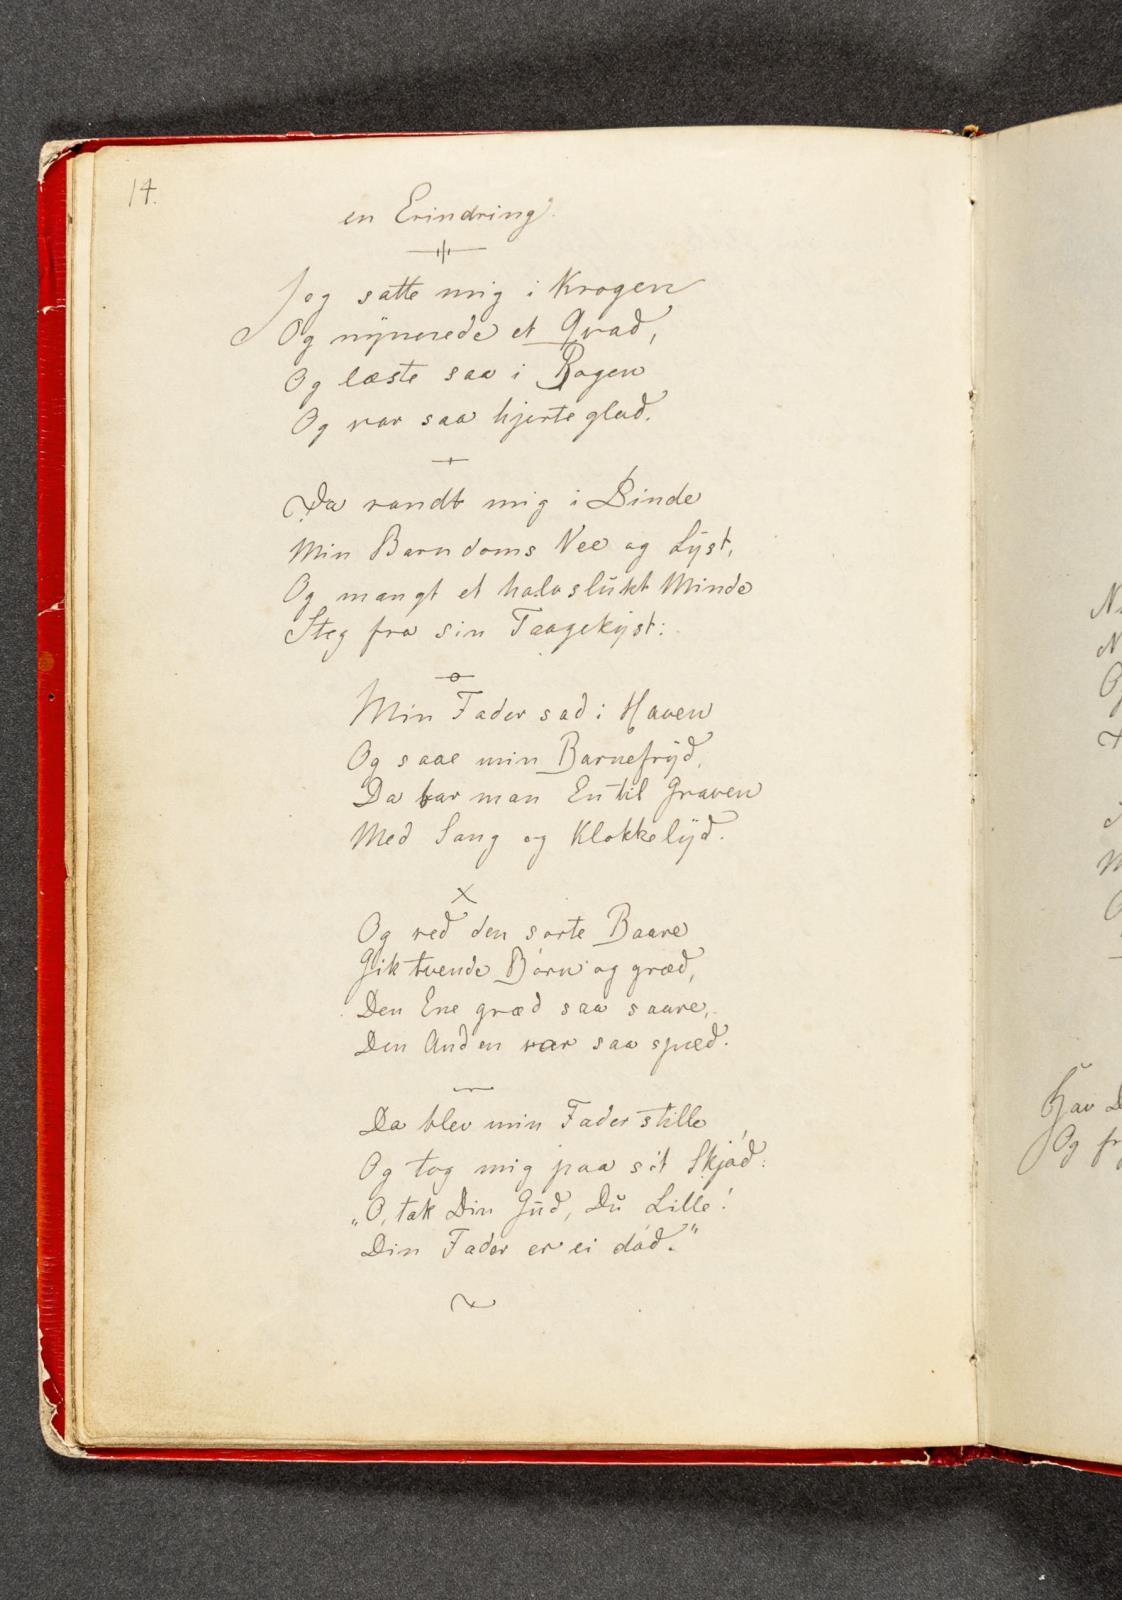 14.
en Erindring.
Jeg satte mig i Krogen
Og nynnede et Qvad,
Og læste saa i Bogen
Og var saa hjerteglad.
Da randt mig i Sinde
Min Barndoms Vee og Lyst,
Og mangt et halvslukt Minde
Steg fra sin Taagekyst:
Min Fader sad i Haven
Og saae min Barnefryd,
Da bar man En til Graven
Med Sang og Klokkelyd.
Og ved den sorte Baare
Gik tvende Börn og græd,
Den Ene græd saa saare,
Den Anden var saa spæd.
Da blev min Fader stille
Og tog mig paa sit Skjöd:
„O, tak Din Gud, Du Lille!
Din Fader er ei död."
Og